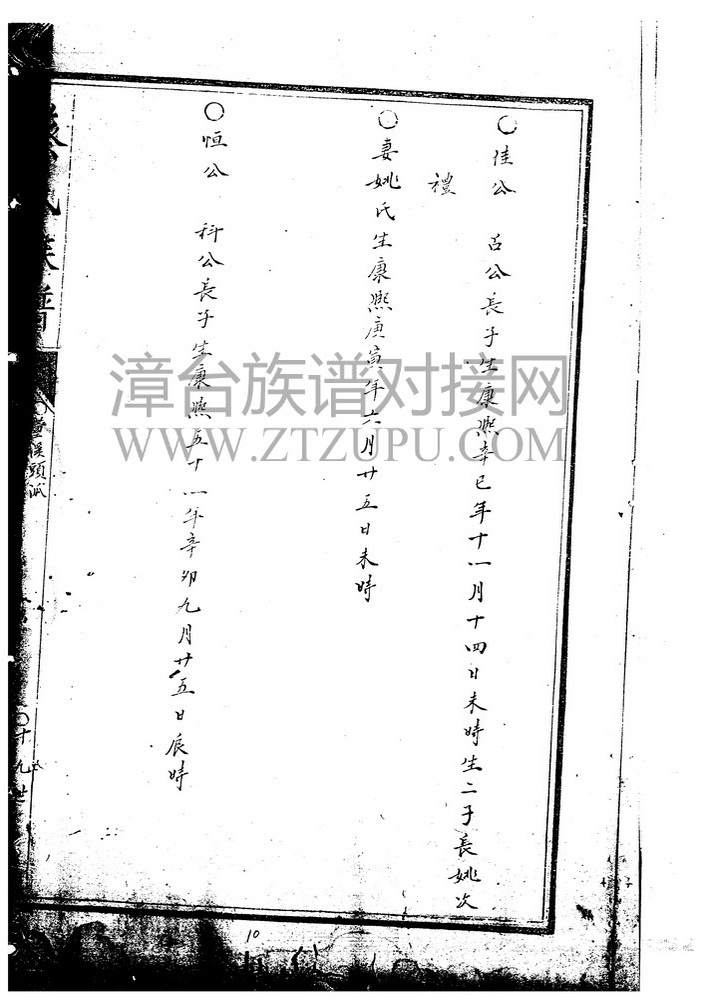 ○佳公 古公長子生康熙辛巳年十一月十四日未時生二子長姚次
禮
○妻姚氏生康熙庚寅年六月廿五日未時
○恒公 科公長子生康熙五十一年辛卯九月廿五日辰時
氏族譜
○十九世
漳台族谱对接网
WWW.ZTZUPU.COM
10